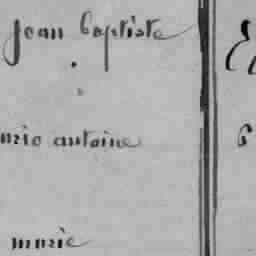 Jean Baptiste
urie antoine
marie